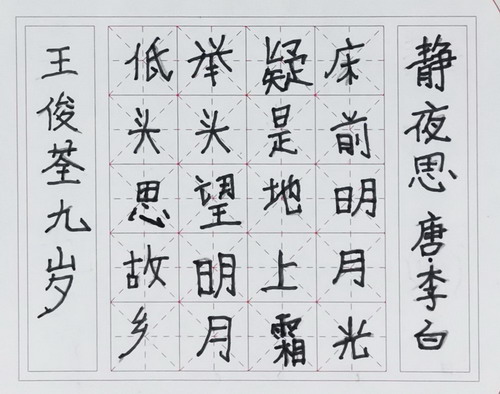 静夜思 唐·李白
床前明月光
疑是地上霜
举头望明月
低头思故乡
王俊荃九岁